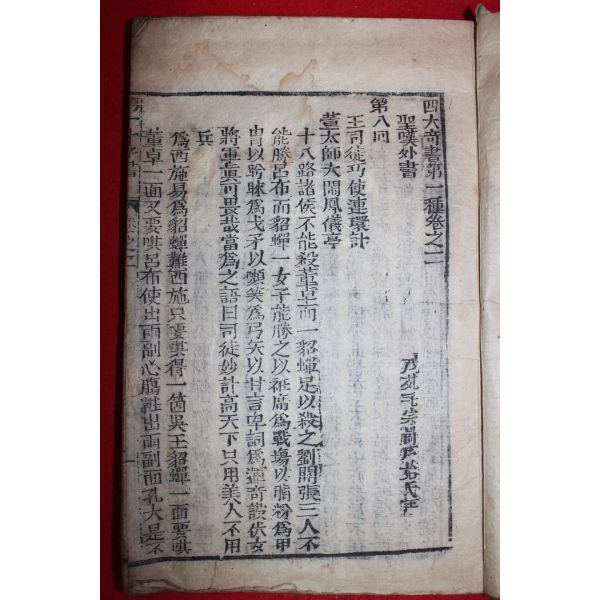 四大奇書第一種卷之二
聖嘆外書
茂苑毛宗崗序始氏評
第八回
王司徒巧使連環計
董太師大鬧鳳儀亭
十八路諸侯不能殺董卓而一貂蟬足以殺之劉關張三人不
能勝呂布而貂蟬一女子能勝之以衽席爲戰場以脂粉爲甲
冑以盻睞爲戈矛以嚬笑爲弓矢以甘言卑詞爲運奇設伏女
將軍眞可畏哉當爲之語曰司徒妙計高天下只用美人不用
兵
爲西施易爲貂蟬難西施只要哄得一箇吳王貂蟬一面要哄
董卓一面又要哄呂布使出兩副心膓粧出兩副面孔大是不